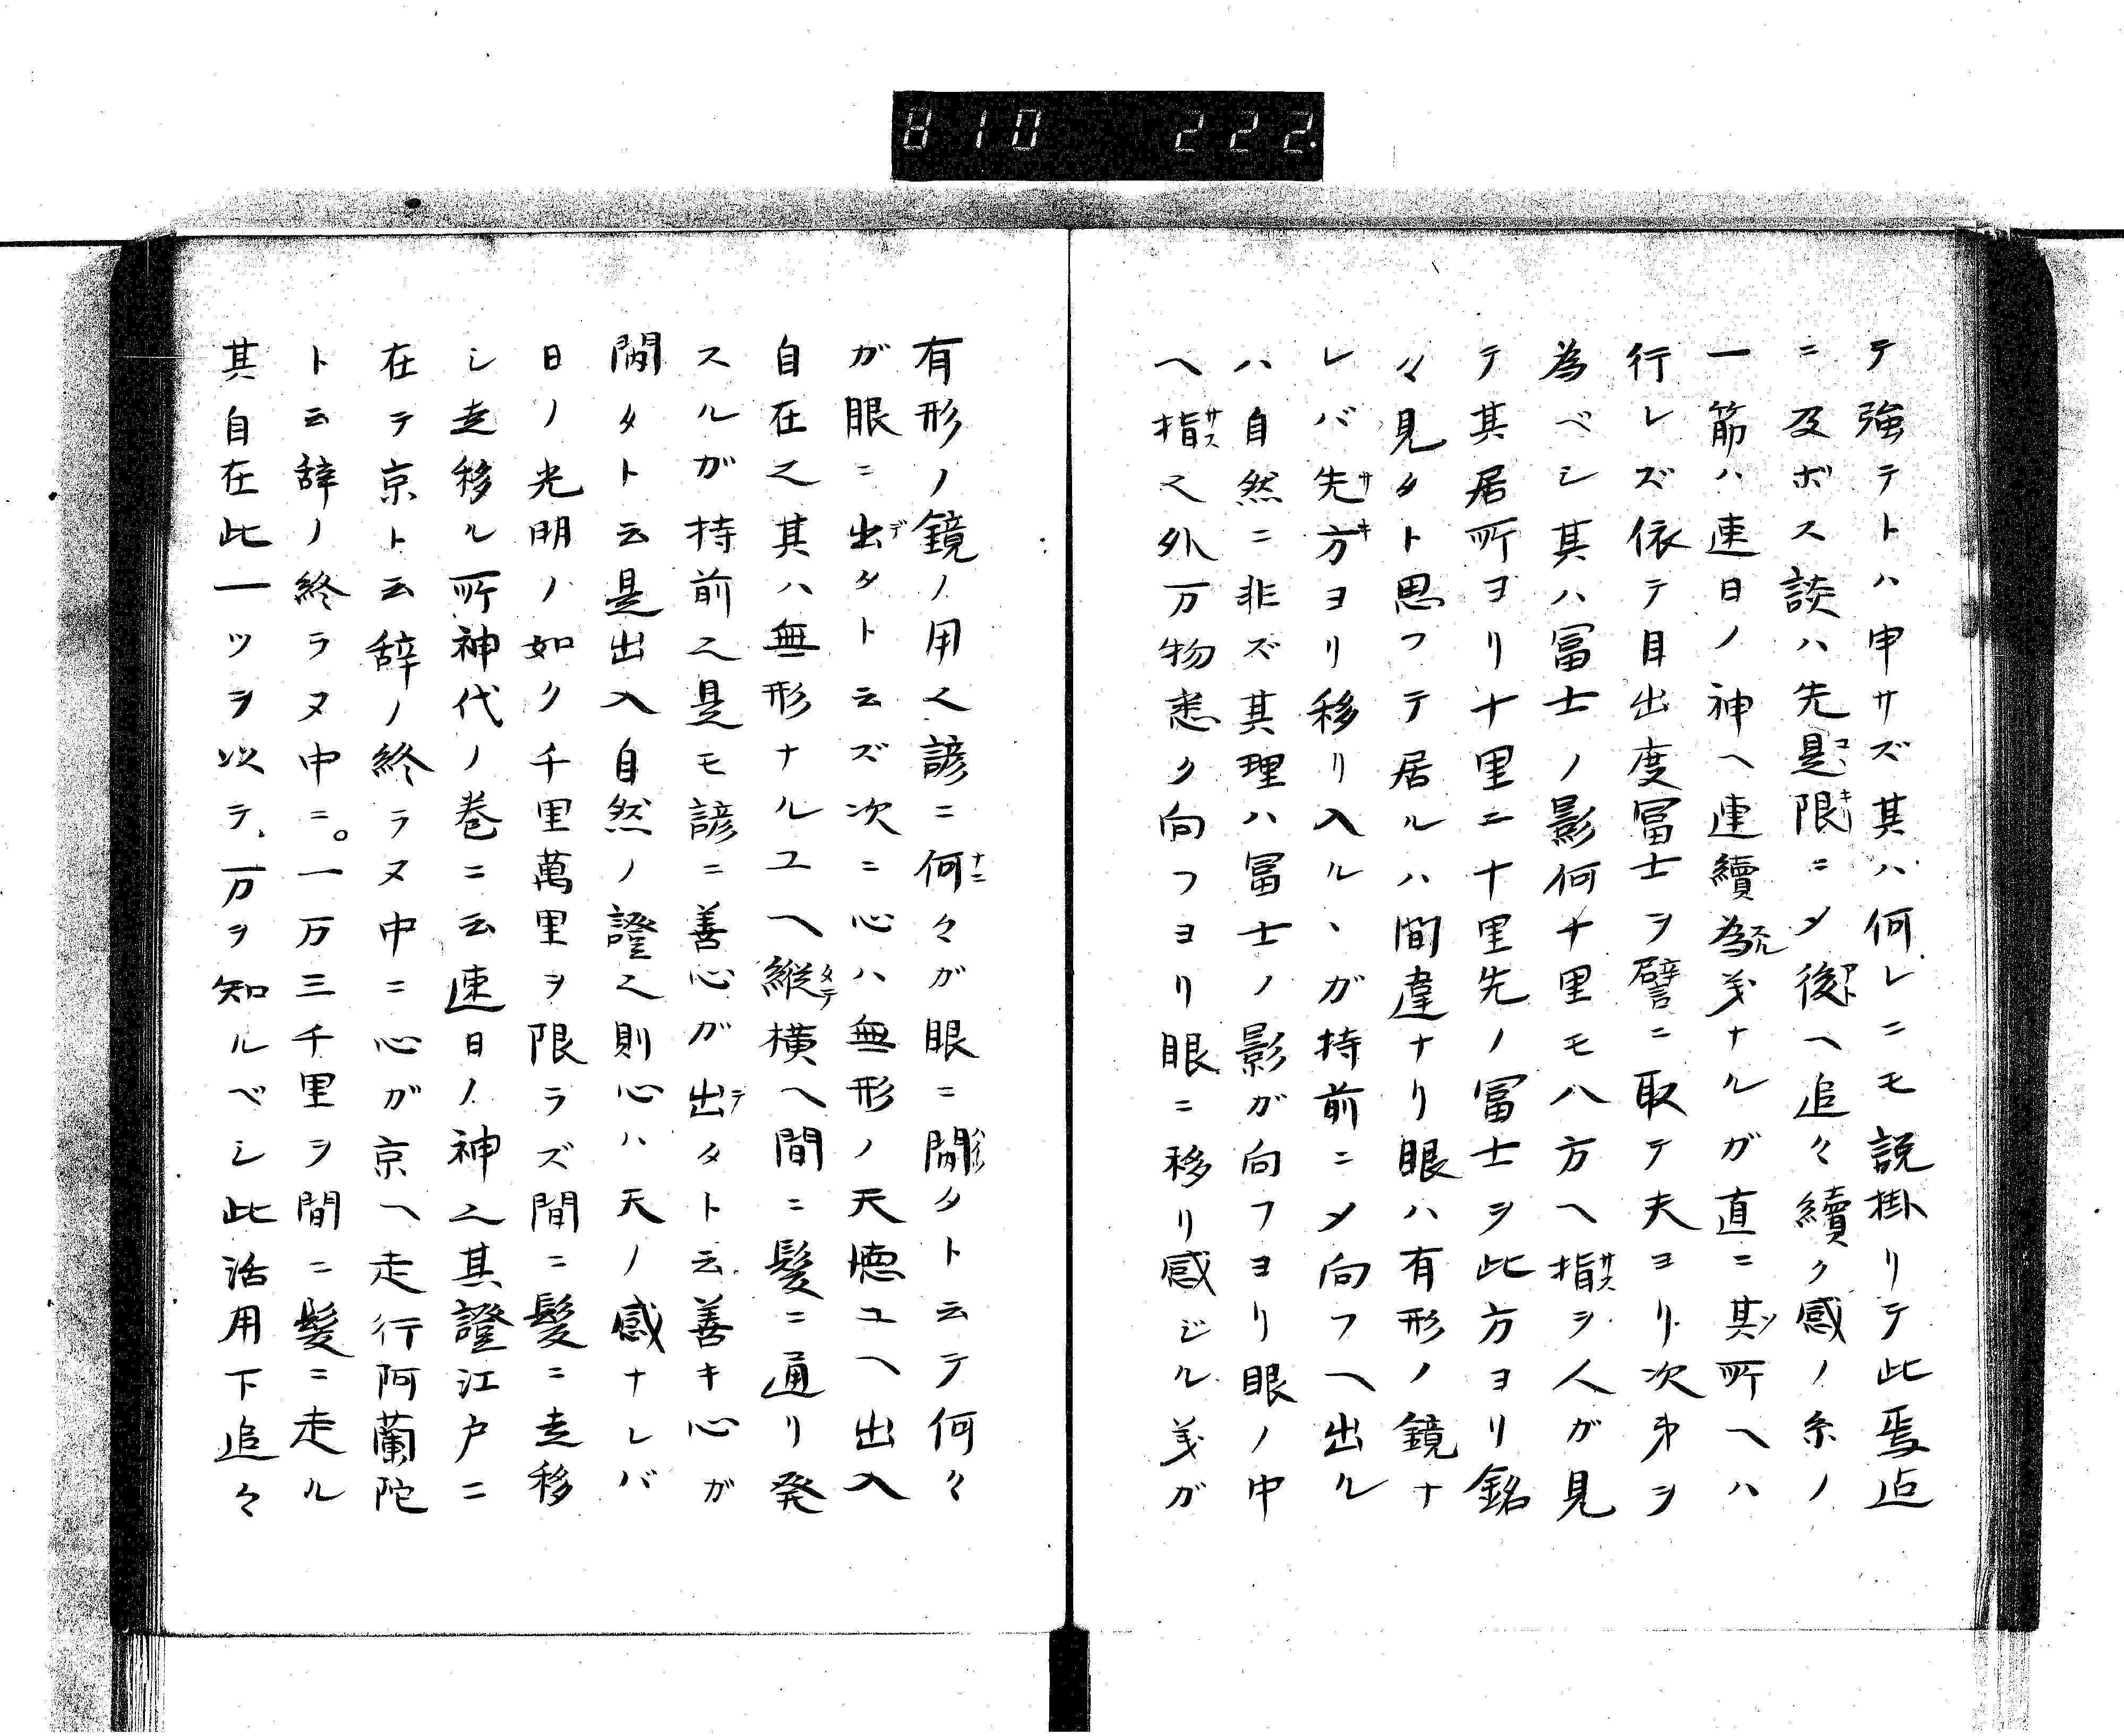 810 222.
テ強テトハ申サズ其ハ何レニモ説掛リテ此焉迠
ニ及ボス談ハ先是限ニ〆後ヘ追々續ク感ノ糸ノ
一筋ハ速日ノ神ヘ連續為シ义ナルガ直ニ其所ヘハ
行レズ依テ目出度冨士ヲ譬ニ取テ夫ヨリ次㐧ヲ
為ベシ其ハ冨士ノ影何十里モ八方ヘ指ヲ人ガ見
テ其居所ヨリ十里二十里先ノ冨士ヲ此方ヨリ銘
々見タト思フテ居ルハ間違ナリ眼ハ有形ノ鏡ナ
レバ先方ヨリ移リ入ルヽガ持前ニ〆向フヘ出ル
ハ自然ニ非ズ其理ハ冨士ノ影ガ向フヨリ眼ノ中
ヘ指之外万物悉ク向フヨリ眼ニ移リ感ジル义ガ
有形ノ鏡ノ用之諺ニ何々ガ眼ニ開タト云テ何々
ガ眼ニ出タト云ズ次ニ心ハ無形ノ天徳ユヘ出入
自在之其ハ無形ナルユヘ縦横ヘ間ニ髪ニ通リ発
スルガ持前之是モ諺ニ善心ガ出タト云善キ心ガ
開タト云是出入自然ノ證之則心ハ天ノ感ナレバ
日ノ光明ノ如ク千里萬里ヲ限ラズ間ニ髪ニ走移
シ走移ル所神代ノ巻ニ云速日ノ神之其證江戸ニ
在テ京ト云辞ノ終ラヌ中ニ心ガ京ヘ走行阿蘭陀
ト云辞ノ終ラヌ中ニ。一万三千里ヲ間ニ髪ニ走ル
其自在此一ツヲ以テ、万ヲ知ルベシ此活用下追々